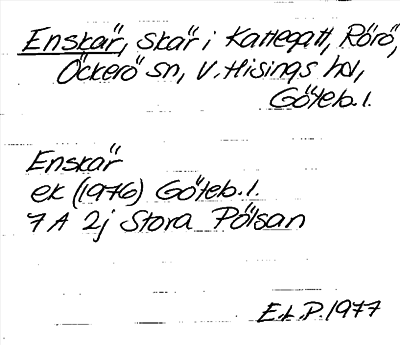 Enskär, skär i Kattegatt, Rörö,
Öckerö sn, V. Hisings hd,
Göteb. l.
Enskär
ek (1976) Göteb. l.
7 A 2j Stora Pölsan
E.L.P. 1977